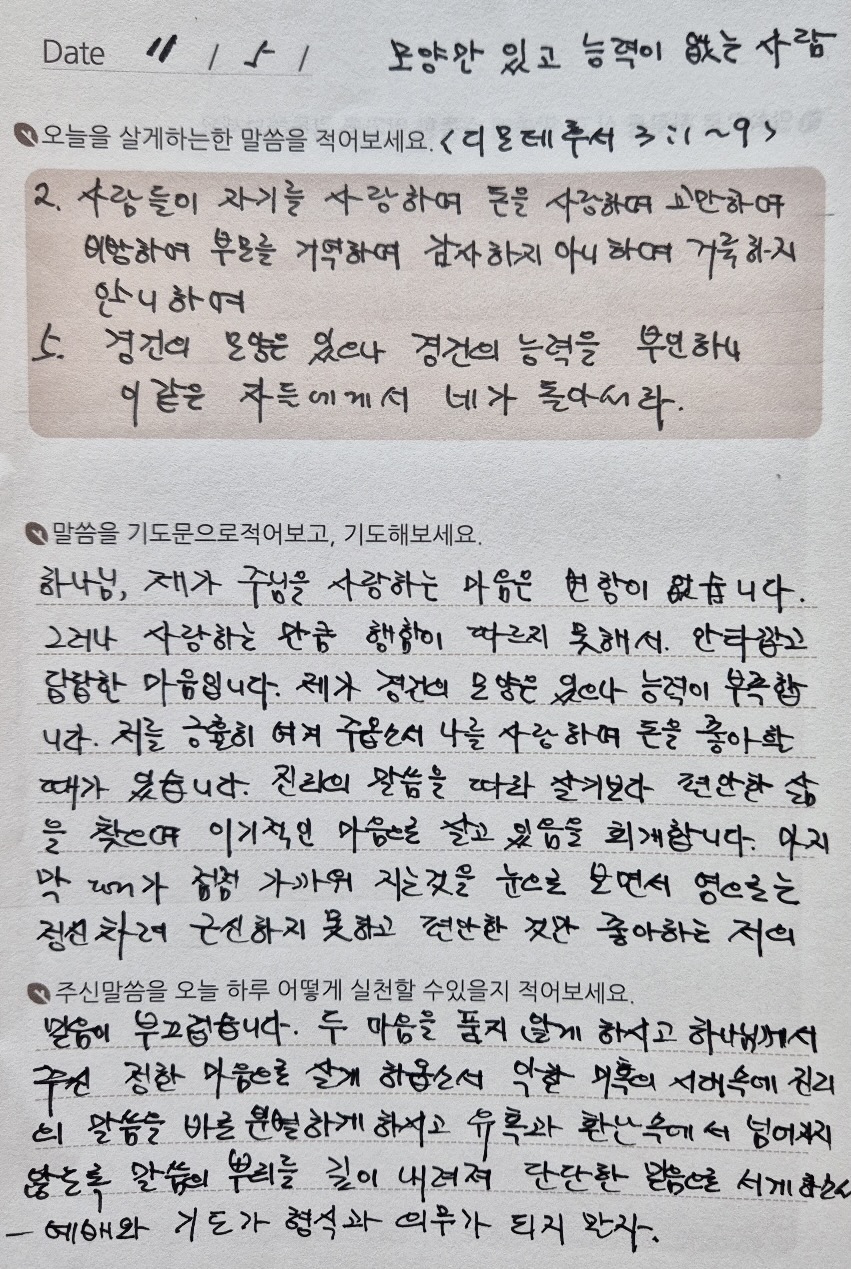 Date 11 / 5 / 모양만 있고 능력이 없는 사람
오늘을 살게하는한 말씀을 적어보세요. <디모데후서 3:1~9>
2. 사람들이 자기를 사랑하며 돈을 사랑하며 교만하며
비방하며 부모를 거역하며 감사하지 아니하며 거룩하지
안니하며
5. 경건의 모양은 있으나 경건의 능력을 부인하니
이같은 자들에게서 네가 돌아서라.
말씀을 기도문으로적어보고, 기도해보세요.
하나님, 제가 주님을 사랑하는 마음은 변함이 없습니다.
그러나 사랑하는 만큼 행함이 따르지 못해서 안타깝고
답답한 마음입니다. 제가 경건의 모양은 있으나 능력이 부족합
니다. 저를 긍휼히 여겨 주옵소서 나를 사랑하며 돈을 좋아할
때가 있습니다. 진리의 말씀을 따라 살기보다 편안한 삶
을 찾으며 이기적인 마음으로 살고 있음을 회개합니다. 마지
막 때가 점점 가까워 지는것을 눈으로 보면서 영으로는
정신차려 근신하지 못하고 편안한 것만 좋아하는 저의
주신말씀을 오늘 하루 어떻게 실천할 수있을지 적어보세요.
맘음이 부끄럽습니다. 두 마음을 품지 않게 하시고 하나님께서
주신 정한 마음으로 살게 하옵소서 악한 미혹의 시대속에 진리
의 말씀을 바로 분별하게 하시고 유혹과 환난속에서 넘어지지
않도록 말씀의 뿌리를 깊이 내려져 단단한 맘음으로 서게하소서
- 예배와 기도가 형식과 의무가 되지 말자.